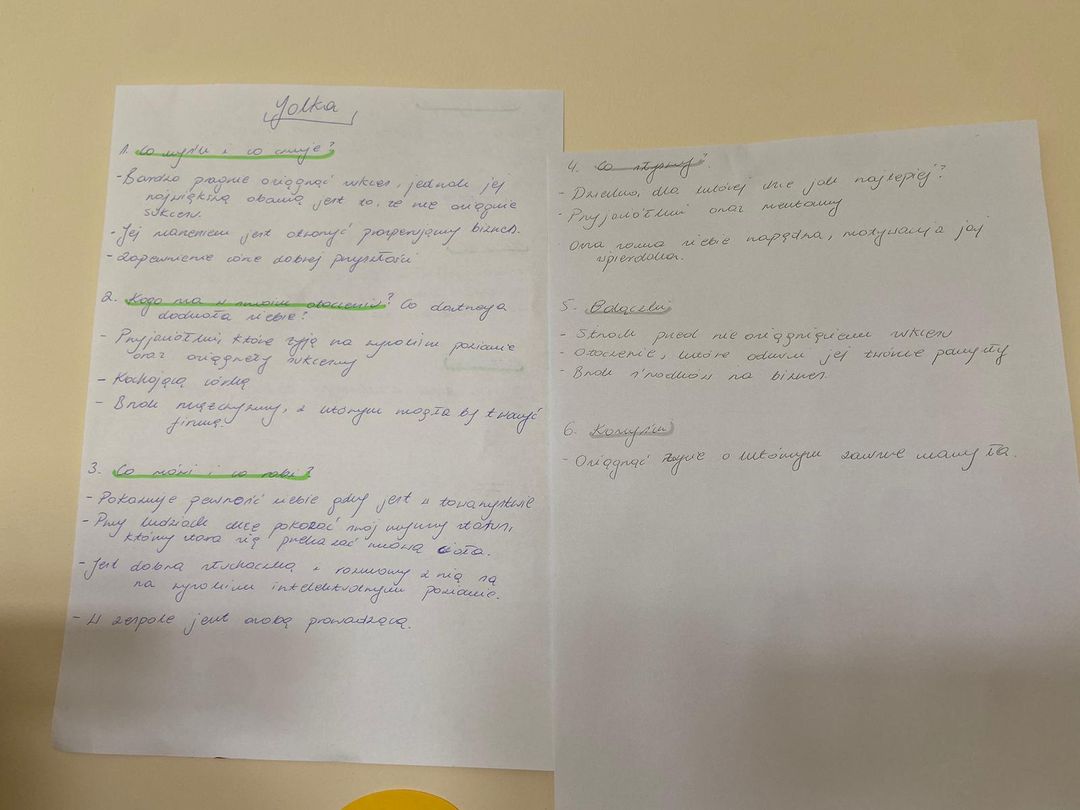 Jolka
1. Co myśli i co czuje?
- Bardzo pragnie osiągnąć sukces, jednak jej
największą obawą jest to, że nie osiągnie
sukcesu.
- Jej marzeniem jest otworzyć prosperujący biznes.
- Zapewnienie córce dobrej przyszłości
2. Kogo ma w swoim otoczeniu? Co dostrzega
dookoła siebie?
- Przyjaciółki, które żyją na wysokim poziomie
oraz osiągnęły sukcesy
- Kochającą córkę
- Brak mężczyzny, z którym mogła by tworzyć
firmę.
3. Co mówi i co robi?
- Pokazuje pewność siebie gdy jest w towarzystwie
- Przy ludziach chce pokazać swój wyższy status,
który stara się przekazać mową ciała.
- Jest dobrą słuchaczką a rozmowy z nią są
na wysokim intelektualnym poziomie.
- W zespole jest osobą prowadzącą.
4. Co słyszy?
- Dziecko, dla której chce jak najlepiej?
- Przyjaciółki oraz mentorzy
Ona sama siebie napędza, motywacja jej
5. Bolączki
- Strach przed nie osiągnięciem sukcesu
- Otoczenie, które odrzuci jej twórcze pomysły
- Brak środków na biznes.
6. Korzyści
- Osiągnąć życie o którym zawsze marzyła.